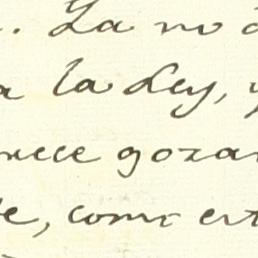 . La no
a la Ley, y
rece gozar
te, como est